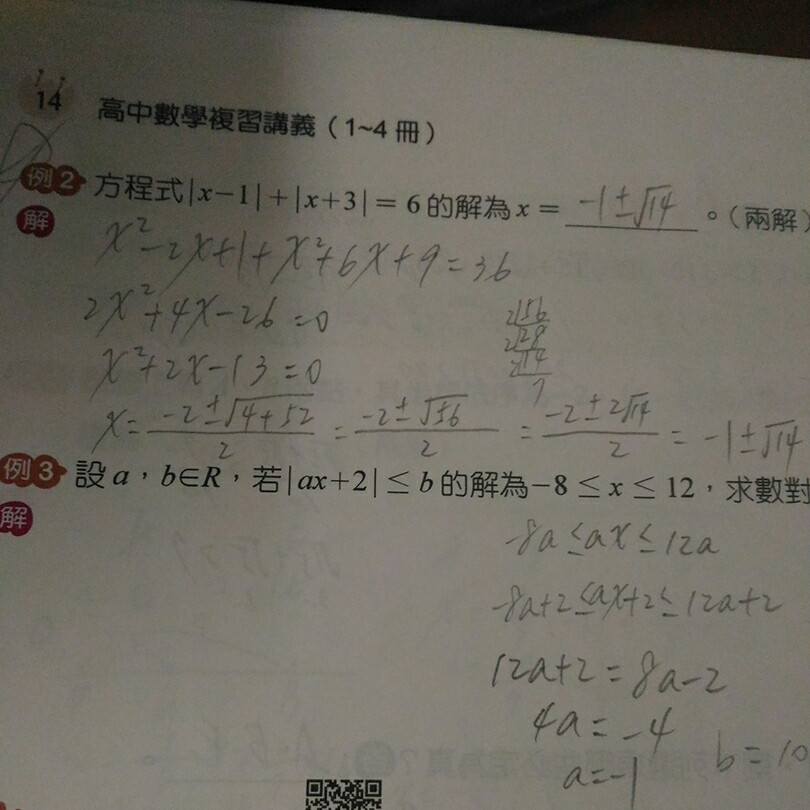 14 高中數學複習講義（1~4冊）
例2 方程式|x−1|+|x+3|=6的解為x= -1±√14 。（兩解）
解
x²-2x+1+x²+6x+9=36
2x²+4x-26=0
x²+2x-13=0
2 56
2 28
2 14
7
x= -2±√4+52 / 2 = -2±√56 / 2 = -2±2√14 / 2 = -1±√14
例3 設a，b∈R，若|ax+2|≤b的解為−8≤x≤12，求數對
解
-8a≤ax≤12a
-8a+2≤ax+2≤12a+2
12a+2=8a-2
4a=-4
a=-1
b=10